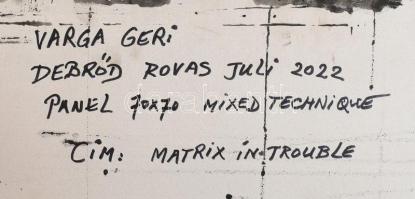 VARGA GERI
DEBRŐD ROVAS JULI 2022
PANEL 70X70 MIXED TECHNIQUE
CIM: MATRIX IN TROUBLE